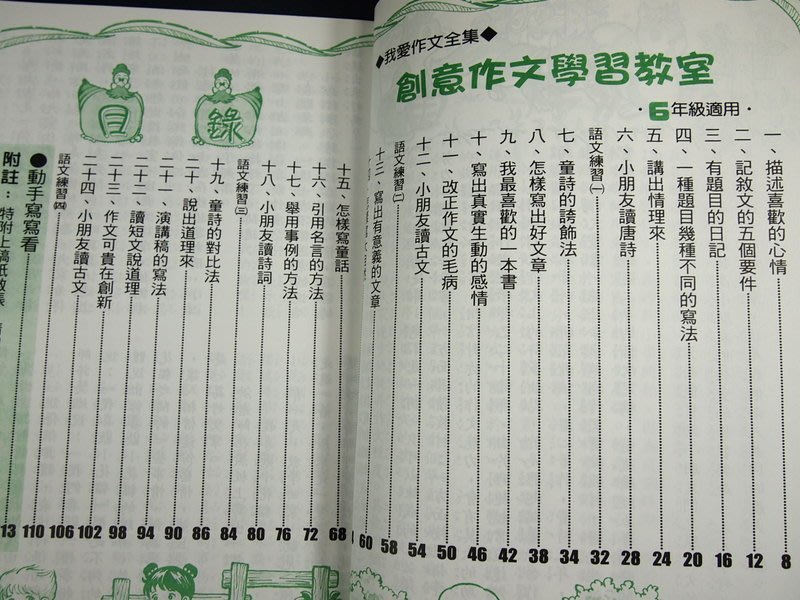 ◆我愛作文全集◆
創意作文學習教室
·6年級適用·
一、描述喜歡的心情 8
二、記敘文的五個要件 12
三、有題目的日記 16
四、一種題目幾種不同的寫法 20
五、講出情理來 24
六、小朋友讀唐詩 28
語文練習㈠ 32
七、童詩的誇飾法 34
八、怎樣寫出好文章 38
九、我最喜歡的一本書 42
十、寫出真實生動的感情 46
十一、改正作文的毛病 50
十二、小朋友讀古文 54
語文練習㈡ 58
十三、寫出有意義的文章 60
目錄
十五、怎樣寫童話 68
十六、引用名言的方法 72
十七、舉用事例的方法 76
十八、小朋友讀詩詞 80
語文練習㈢ 84
十九、童詩的對比法 86
二十、說出道理來 90
二十一、演講稿的寫法 94
二十二、讀短文說道理 98
二十三、作文可貴在創新 102
二十四、小朋友讀古文 106
語文練習㈣ 110
●動手寫寫看 13
附註：特附上稿紙數張